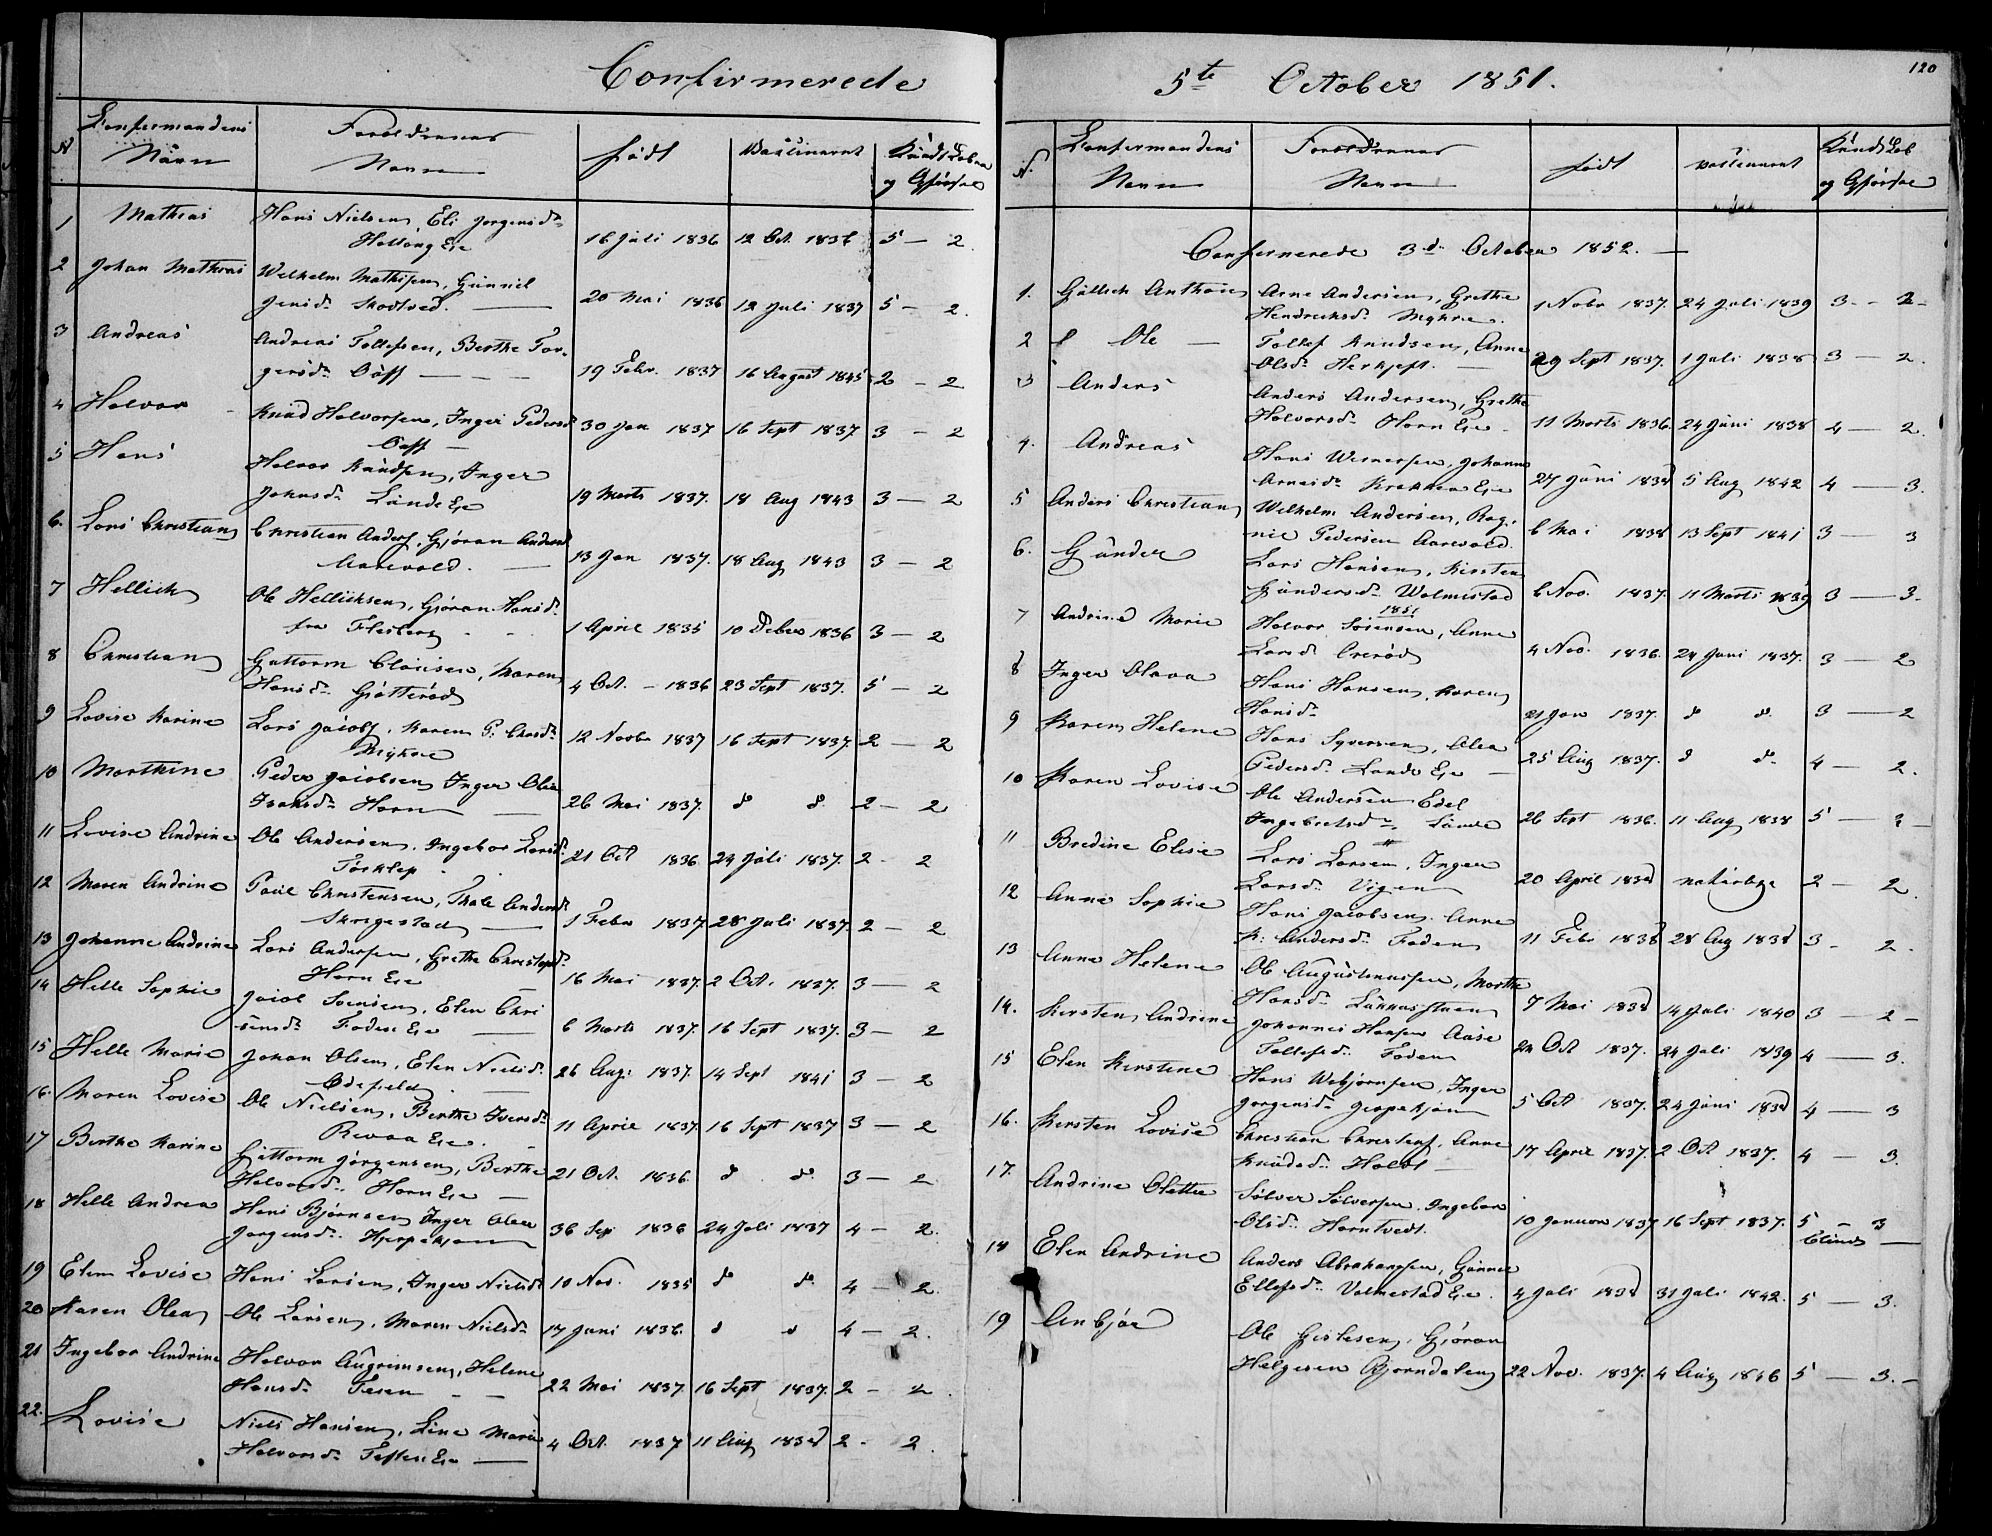 Confirmerede
N
Confirmandens Navn
Forældrenes Navn
født
Vaccineret
Kundskaber og Opførsel
1 Mathias Hans Nielsen, Eli Jørgensd. 16 Juli 1836 12 Oct. 1836 5 — 2.
Holtong Eie
2 Johan Mathias Wilhelm Mathisen, Gunnil
Jensd. Skodtved. — 20 Mai 1836 12 Juli 1837 5 — 2.
3 Andreas Andreas Tollefsen, Berthe Tor-
gersd. — — — 19 Febr. 1837 16 August 1845 2 — 2
4 Halvor Knud Halvorsen, Inger Pedersd. 30 Jan 1837 16 Sept 1837 3 — 2
5 Hans Halvor Knudsen, Inger
Johnsd. Lunde Eie 19 Marts 1837. 18 Aug 1843 3 — 2
6. Lars Christian Christian Anders., Gjøran Andersd.
Aarevold. — 13 Jan 1837. 18 Aug 1843 3 — 2
7 Hellich Ole Hellichsen, Gjøran Hansd.
fra Flesberg 1 April 1835 10 Decbr 1836 3 — 2
8 Christian Guttorm Clausen, Maren
Hansd. Gjøtterød 4 Oct. — 1836 23 Sept 1837. 5 — 2
9 Lovise Karine Lars Jacobs., Karen P. 12 Novbr 1837 16 Sept 1837. 2 — 2
Myhre
10 Marthine Peder Jacobsen Inger Olea
Hansd. Horn — 26 Mai 1837. d d. 2 — 2
11 Lovise Andrine Ole Andersen, Ingebor Larsd. 21 Oct 1836 24 Juli 1837. 2 - 2
12 Maren Andrine Poul Christensen, Thale Andersd.
— 1 Febr 1837 28 Juli 1837. 2 — 2
13 Johanne Andrine Lars Andersen, Grethe Christophd.
Horn Eie 16 Mai 1837. 2 Oct. 1837. 3 — 2
14 Helle Sophie Jacob Svensen, Elen Chri
stensd. Foden Eie — 6 Marts 1837. 16 Sept 1837. 3 — 2
15 Helle Marie Johan Olsen, Elen Nielsd. 26 Aug. 1837. 14 Sept 1841 3 — 2
16. Maren Lovise Ole Nielsen, Berthe Iversd.
Revaa Eie. 11 April 1837. 16 Sept 1837 3 — 2
17 Berthe Karine Guttorm Jørgensen, Berthe
Halvorsd. Horn Eie — 21 Oct. 1836. d d. 3 — 2
18 Helle Andrea Hans Bjørnsen, Inger Olea
Jørgensd. 36 Sep 1836 24 Juli 1837 4 — 2.
19 Elen Lovise Hans Larsen, Inger Nielsd. 10 Nov. 1835 d d. 4 — 2.
20 Karen Olea Ole Larsen, Maren Nielsd. 17 Juni 1836. d d 4 — 2.
21 Ingebor Andrine Halvor Augrimsen, Helene
Hansd. Fesen — — 22 Mai 1837. 16 Sept 1837. 2 — 2
22. Lovise Niels Hansen, Line Marie
Halvorsd. Eie — 4 Oct. 1837 11 Aug 1838 2 - 2.
5te October 1851.
120
N.
Confirmandens Navn
Forældrenes Navn
født
vaccineret
Kundskab og Opførsel
Confirmerede 3d October 1852. —
1. Gullich Anthon Arne Andersen, Grethe
Hendrichsd. Myhre. 1 Nobr 1837. 24 Juli 1839 3 - 2 -
2 Ole — Tollef Knudsen, Anne
Olsd. — 29 Sept 1837. 1 Juli 1838 3 — 2.
3 Anders Anders Andersen, Grethe
Halvorsd. Horn Eie. 11 Marts 1836. 24 Juni 1838 4 — 2.
4. Andreas Hans Wernersen, Johanne
Arnesd. Eie 27 Juni 1838 5 Aug 1842 4 — 3.
5 Anders Christian Wilhelm Andersen, Rag-
nil Pedersen Aarevold. 6 Mai 1838 13 Sept 1841 3 — 3
6. Gunder Lars Hansen, Kirsten
Gundersd. Wolmestad 6 Nov. 1837. 11 Marts 1839 3 — 3.
1851
7 Andrine Marie Halvor Sørensen, Anne
Larsd. 4 Nov. 1836. 24 Juni 1837. 3 — 2
8 Inger Olava Hans Hansen, Karen
Hansd. 21 Jan 1837. d d. 3 — 2
9 Karen Helene Hans Syversen, Olea
Pedersd. Lande Eie — 25 Aug 1837. d d. 4 — 2.
10 Karen Lovise Ole Andersen Edel
Ingebretsd. Lunde 26 Sept 1836. 11 Aug 1838 5 — 2 —
11 Bredine Elise Lars Larsen, Inger
Larsd. Vigen 20 April 1838 naturlige 2 — 2.
12 Anne Sophie Hans Jacobsen, Anne
K: Andersd. Foden 11 Febr 1838 28 Aug 1838 3 - 2.
13 Anne Helene Ole Augustinussen, Marthe
Hansd. 7 Mai 1838 14 Juli 1840 3 — 2 —
14. Kirsten Andrine Johannes Hansen Aase
Tollefsd. Foden 24 Oct 1837. 24 Juli 1839 4 — 3.
15 Elen Kirstine Hans Webjørnsen, Inger
Jørgensd. 5 Oct 1837. 24 Juni 1838 4 — 3
16. Kirsten Lovise Christian Christens. Anne
Knudsd. Holdt — 17 April 1837. 2 Oct 1837. 4 — 3.
17. Andrine Olette Sølver Sølversen, Ingebor
Olsd. Horntvedt. 10 Januar 1837 16 Sept 1837. 5 — 3
blind —
18 Elen Andrine Anders Abrahamsen, Gunnil
Ellefsd. Volmestad Eie. 4 Juli 1838 31 Juli 1842. 5 — 3.
19 Anbjør Ole Gislesen, Gjøran
Helgesen Bjørndalen 22 Nov. 1837. 4 Aug 1846 5 — 3. —